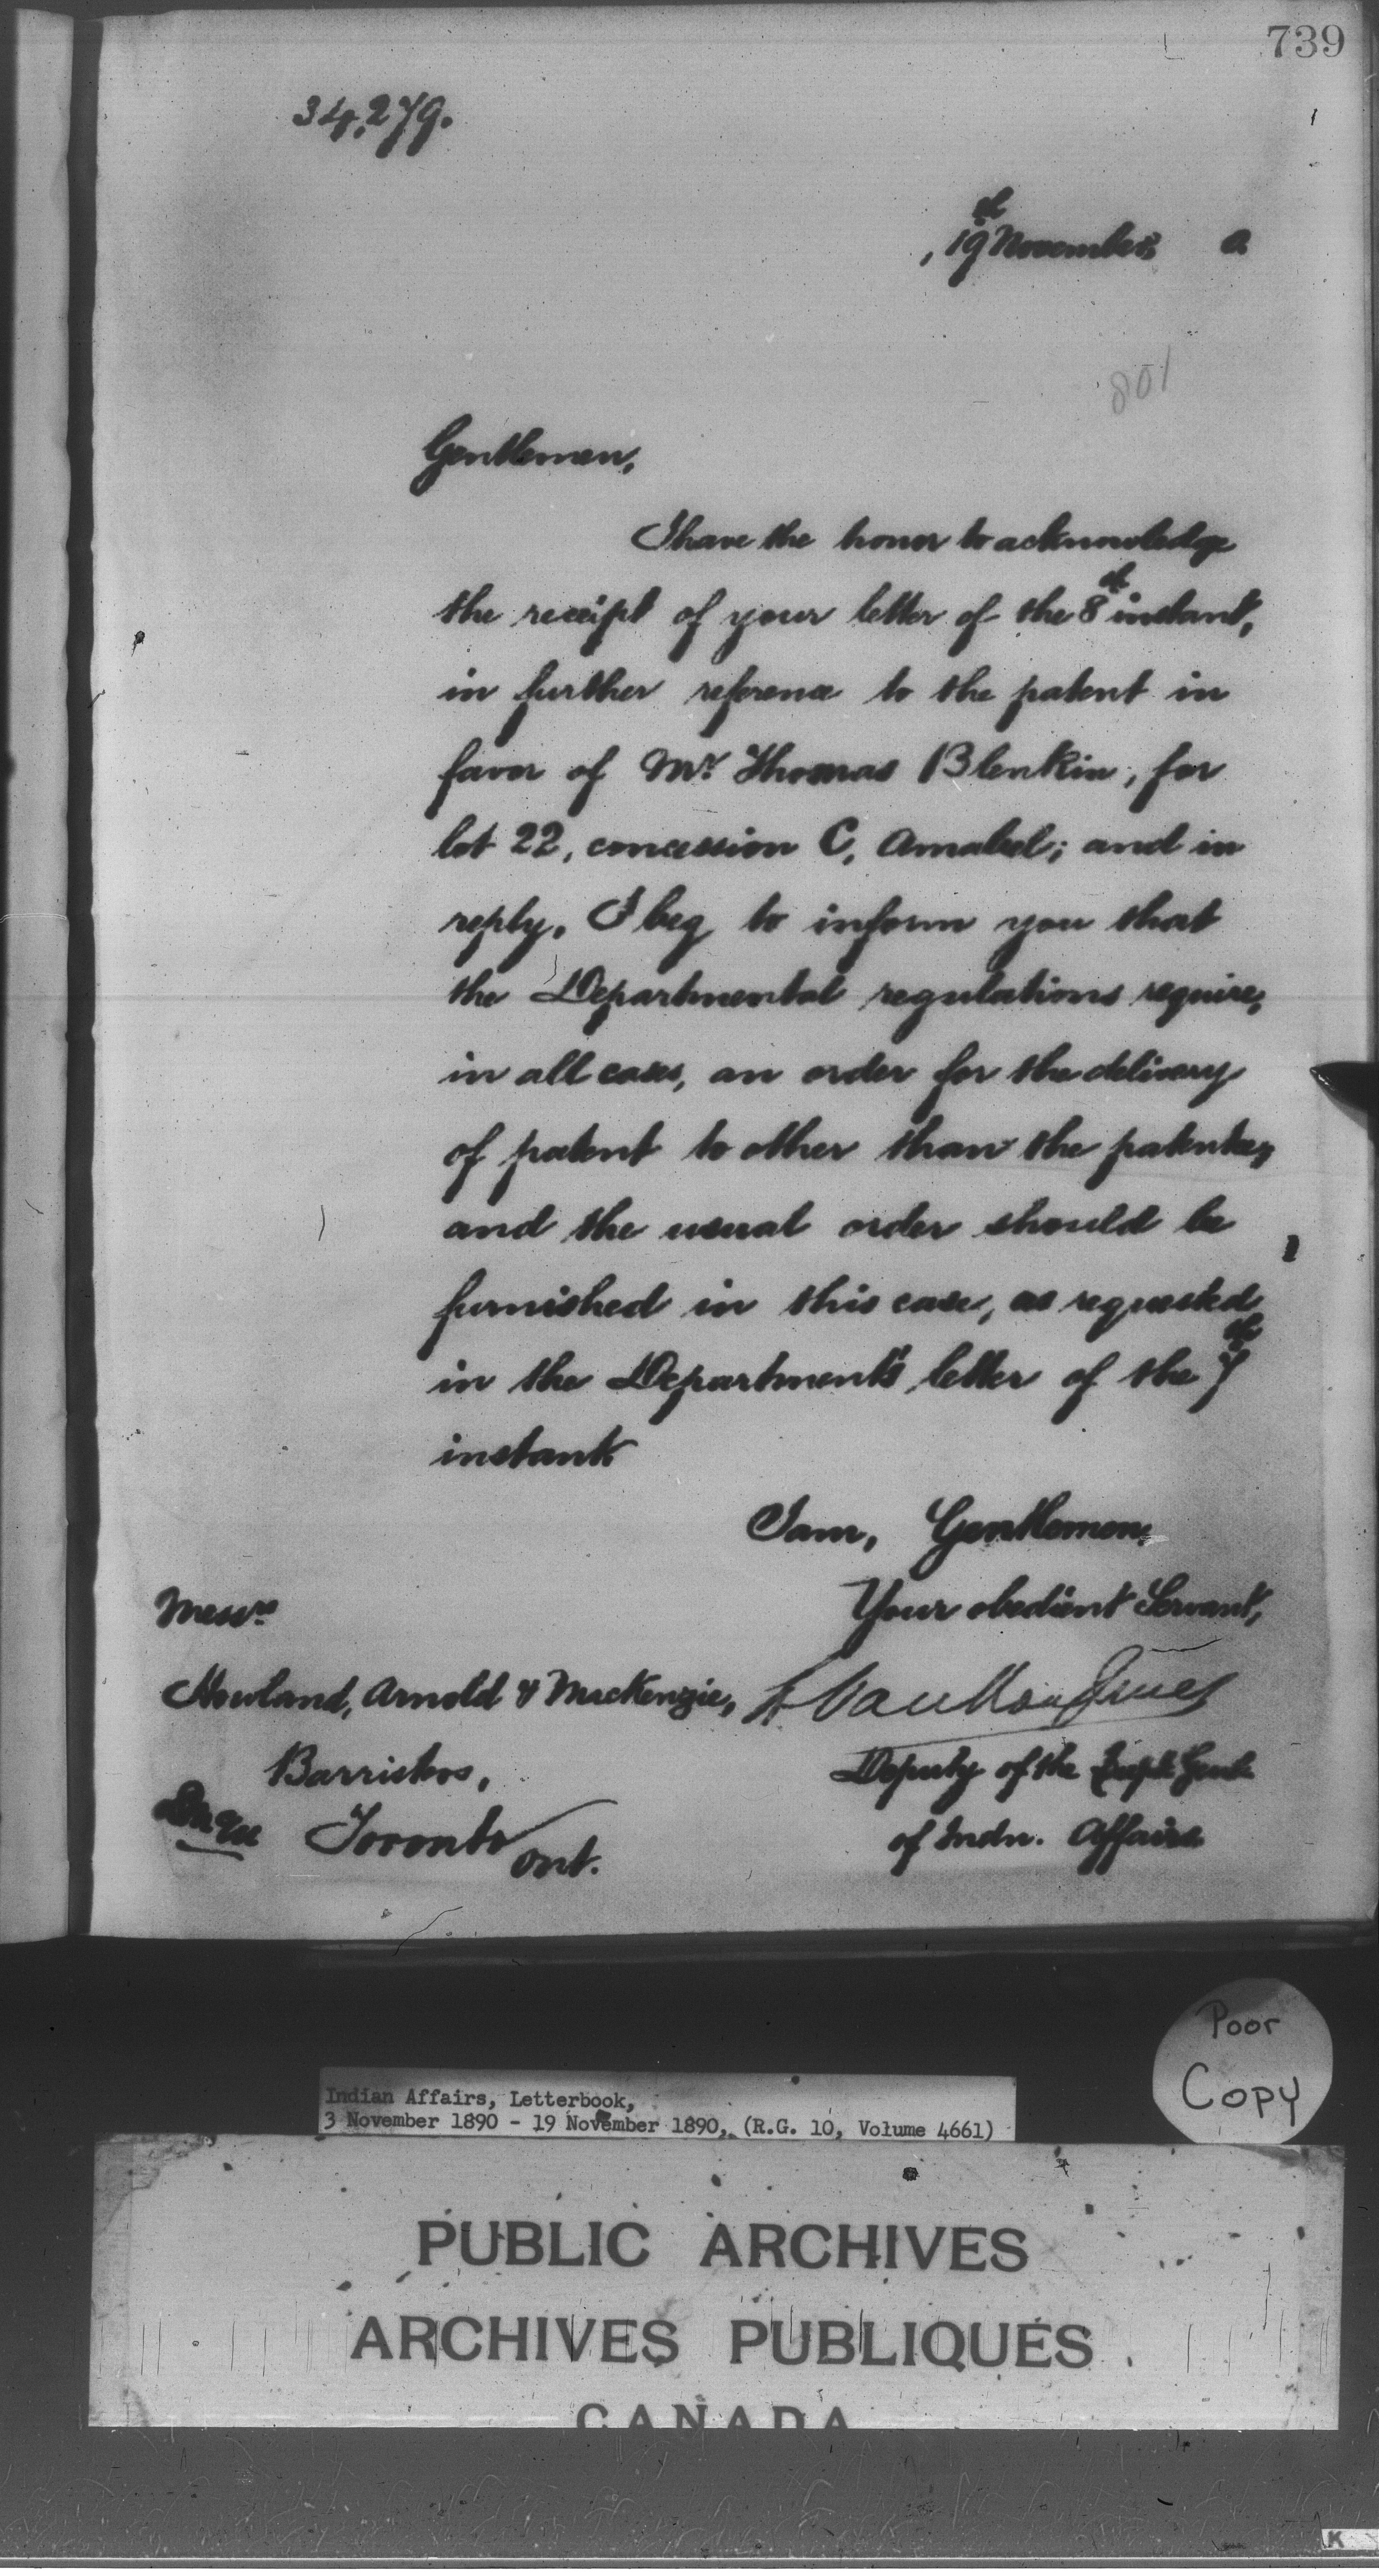 739
34,279.
, 19th November, 0
801
Gentlemen,
I have the honor to acknowledge
the receipt of your letter of the 8th instant,
in further reference to the patent in
favor of Mr. Thomas Blenkin, for
lot 22, concession C, Amabel; and in
reply, I beg to inform you that
the Departmental regulations require,
in all cases, an order for the delivery
of patent to other than the patentee,
and the usual order should be
furnished in this case, as requested
in the Department's letter of the 7th
instant.
I am, Gentlemen,
Your obedient Servant,
Messrs
Howland, Arnold & MacKenzie,
L Vankoughnet
Barristers,
Deputy of the Supt. Genl.
Toronto Ont.
of Indn. Affairs
Poor
Copy
Indian Affairs, Letterbook,
3 November 1890 - 19 November 1890, (R.G. 10, Volume 4661)
PUBLIC ARCHIVES
ARCHIVES PUBLIQUES
CANADA
K